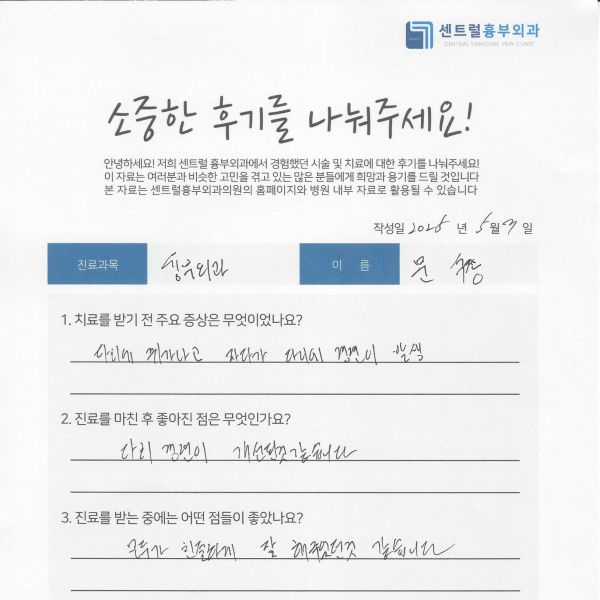 센트럴흉부외과
CENTRAL VARICOSE VEIN CLINIC
소중한 후기를 나눠주세요!
안녕하세요! 저희 센트럴 흉부외과에서 경험했던 시술 및 치료에 대한 후기를 나눠주세요!
이 자료는 여러분과 비슷한 고민을 겪고 있는 많은 분들에게 희망과 용기를 드릴 것입니다
본 자료는 센트럴흉부외과의원의 홈페이지와 병원 내부 자료로 활용될 수 있습니다
작성일 년 5월 일
진료과목 흉부외과 이 름 문
1. 치료를 받기 전 주요 증상은 무엇이었나요?
다리에 쥐가나고 자다가 다리에 경련이 발생
2. 진료를 마친 후 좋아진 점은 무엇인가요?
다리 경련이 개선된것같습니다
3. 진료를 받는 중에는 어떤 점들이 좋았나요?
모두가 친절하게 잘 해주었던것 같습니다